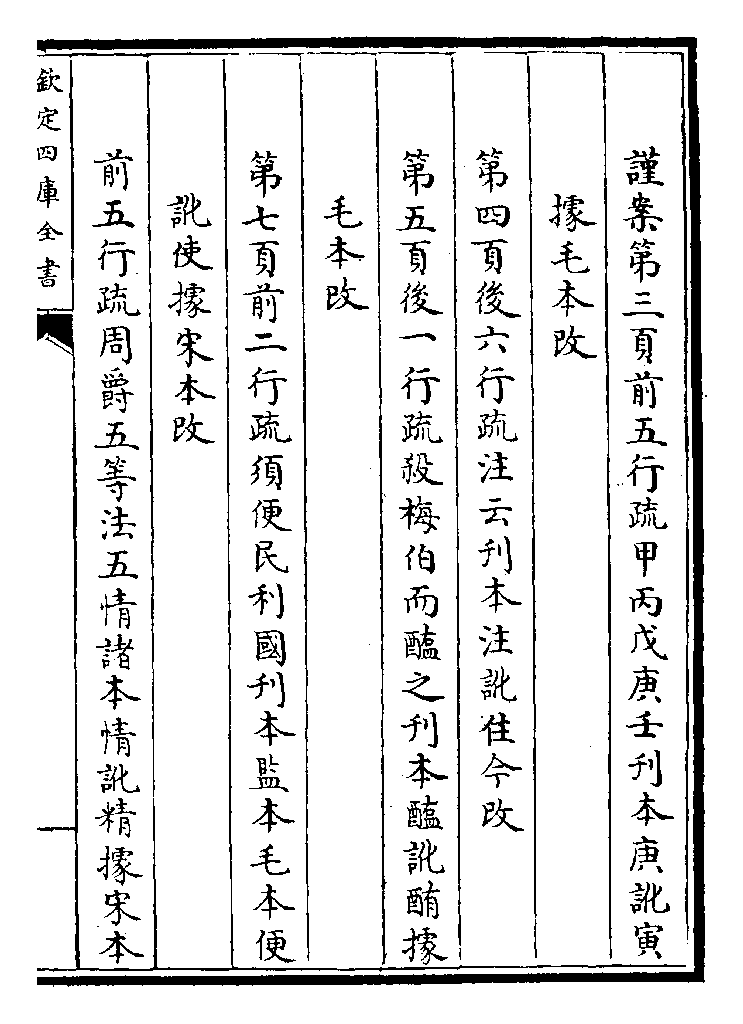 謹案第三頁前五行疏甲丙戊庚壬刊本庚訛寅
據毛本改
第四頁後六行疏注云刊本注訛住今改
第五頁後一行疏殺梅伯而醢之刊本醢訛酭據
毛本改
第七頁前二行疏須便民利國刊本監本毛本便
訛使據宋本改
前五行疏周爵五等法五情諸本情訛精據宋本
欽定四庫全書